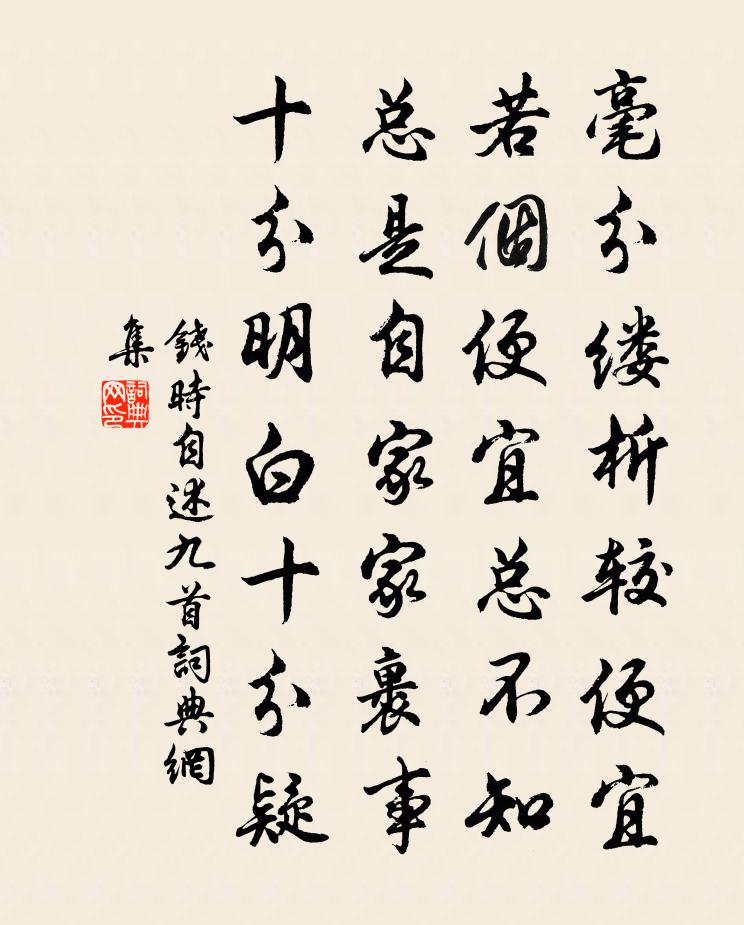 毫分缕析较便宜
若個便宜总不知
总是自家家裏事
十分明白十分疑
錢時自述九首詞典網
集
詞典网印